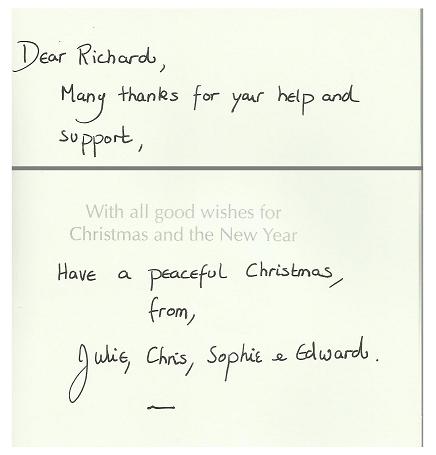 Dear Richard,
Many thanks for your help and
support,
With all good wishes for
Christmas and the New Year
Have a peaceful Christmas,
from,
Julie, Chris, Sophie & Edward.